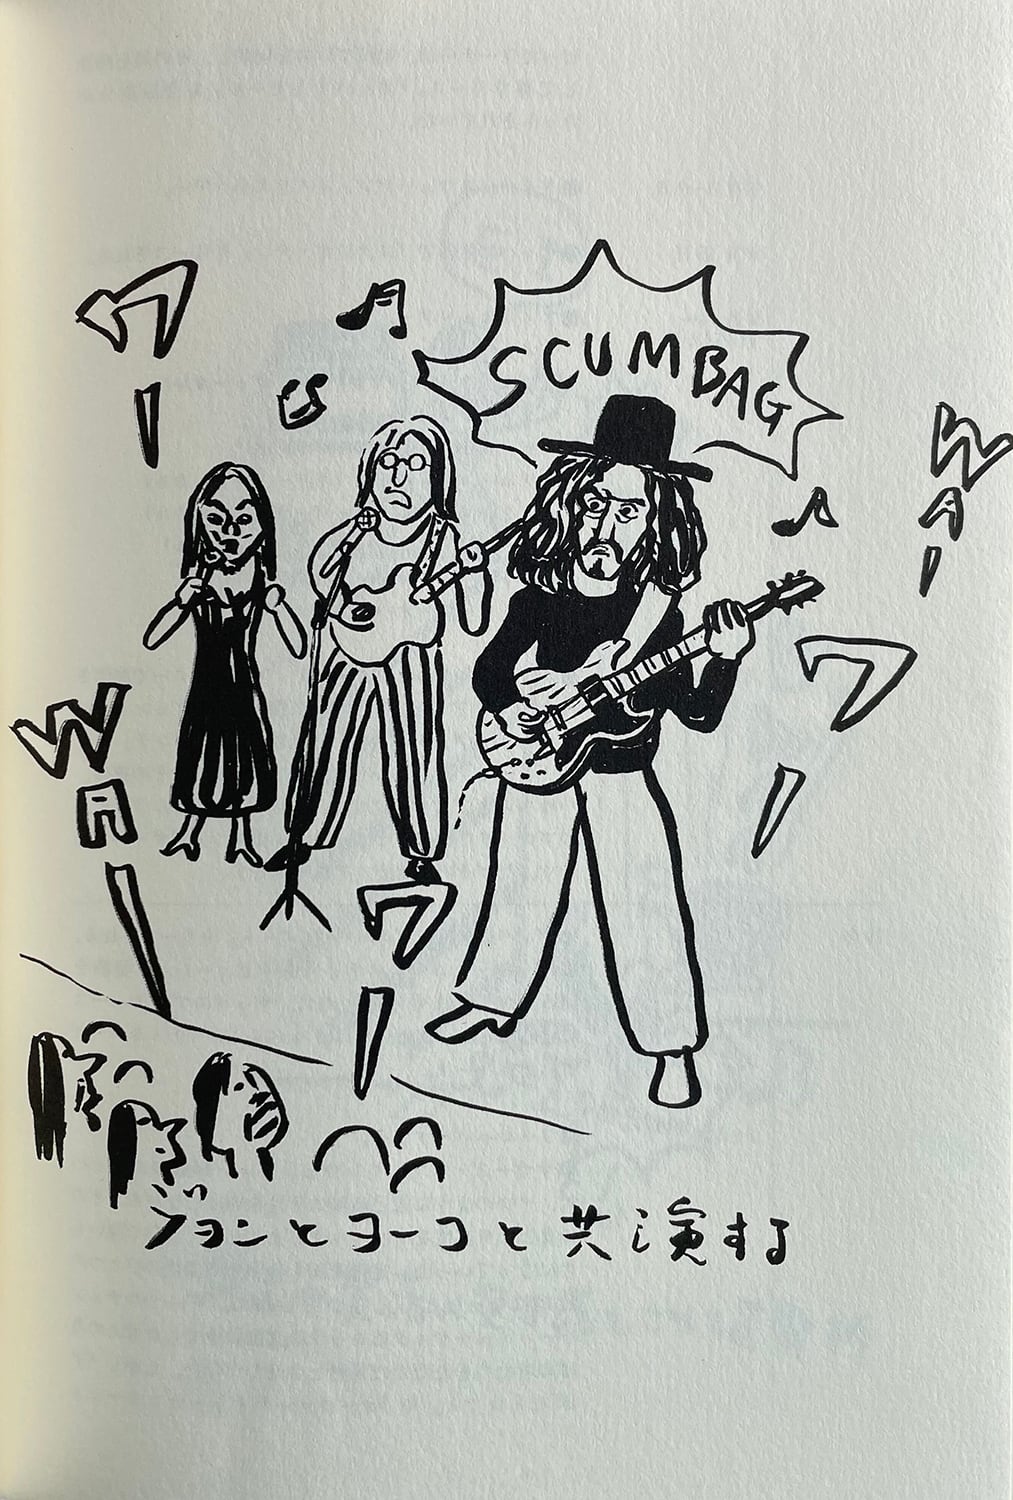 SCUMBAG
ワー
WAー
ワー
WAー
ワー
ジョンとヨーコと共演する